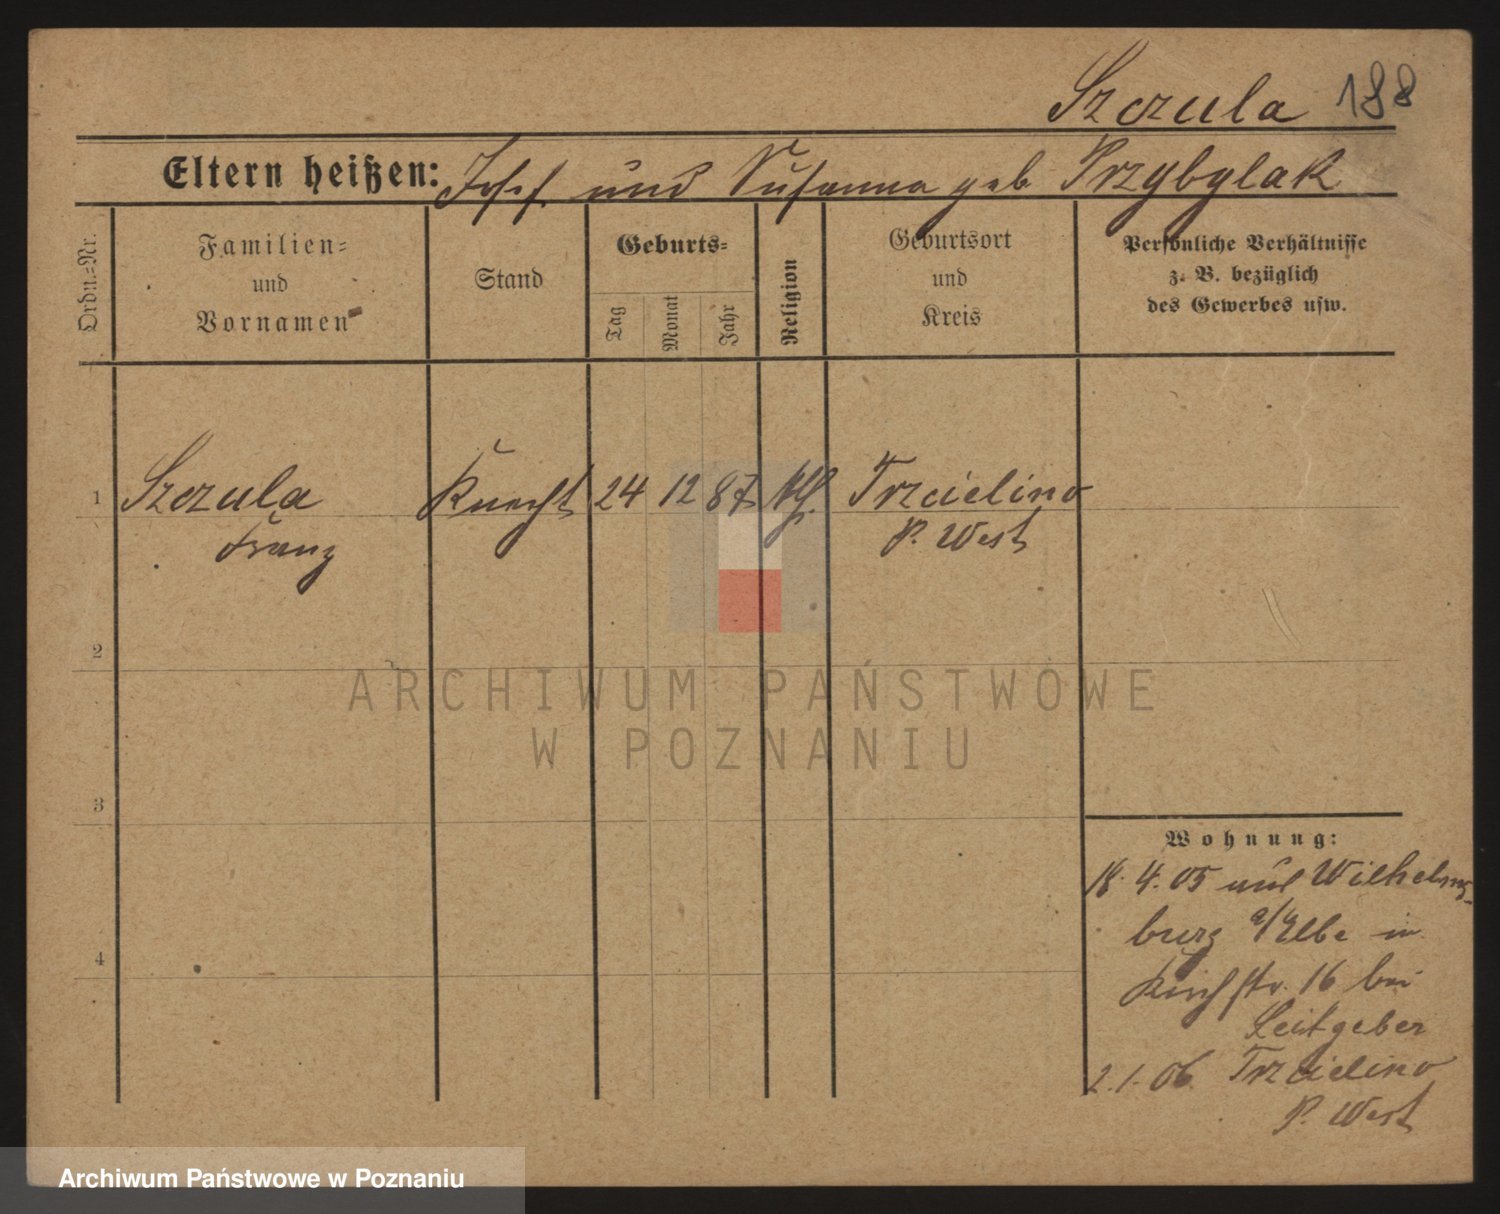 Szczula 188
Eltern heißen: Josef. und Susanna geb Przybylak
Ordn.=Nr.
Familien=
und
Vornamen
Stand
Geburts=
Tag
Monat
Jahr
Religion
Geburtsort
und
Kreis
Persönliche Verhältnisse
z. B. bezüglich
des Gewerbes usw.
1 Szczula Knecht 24 12 87 kth. Trzcielino
Franz P. West
2
3
4
Wohnung:
18. 4. 05 aus Wilhelms-
burg a/Elbe in
Kirchstr. 16 bei
Leitgeber
2. 1. 06 Trzcielino
P. West
ARCHIWUM PAŃSTWOWE
W POZNANIU
Archiwum Państwowe w Poznaniu